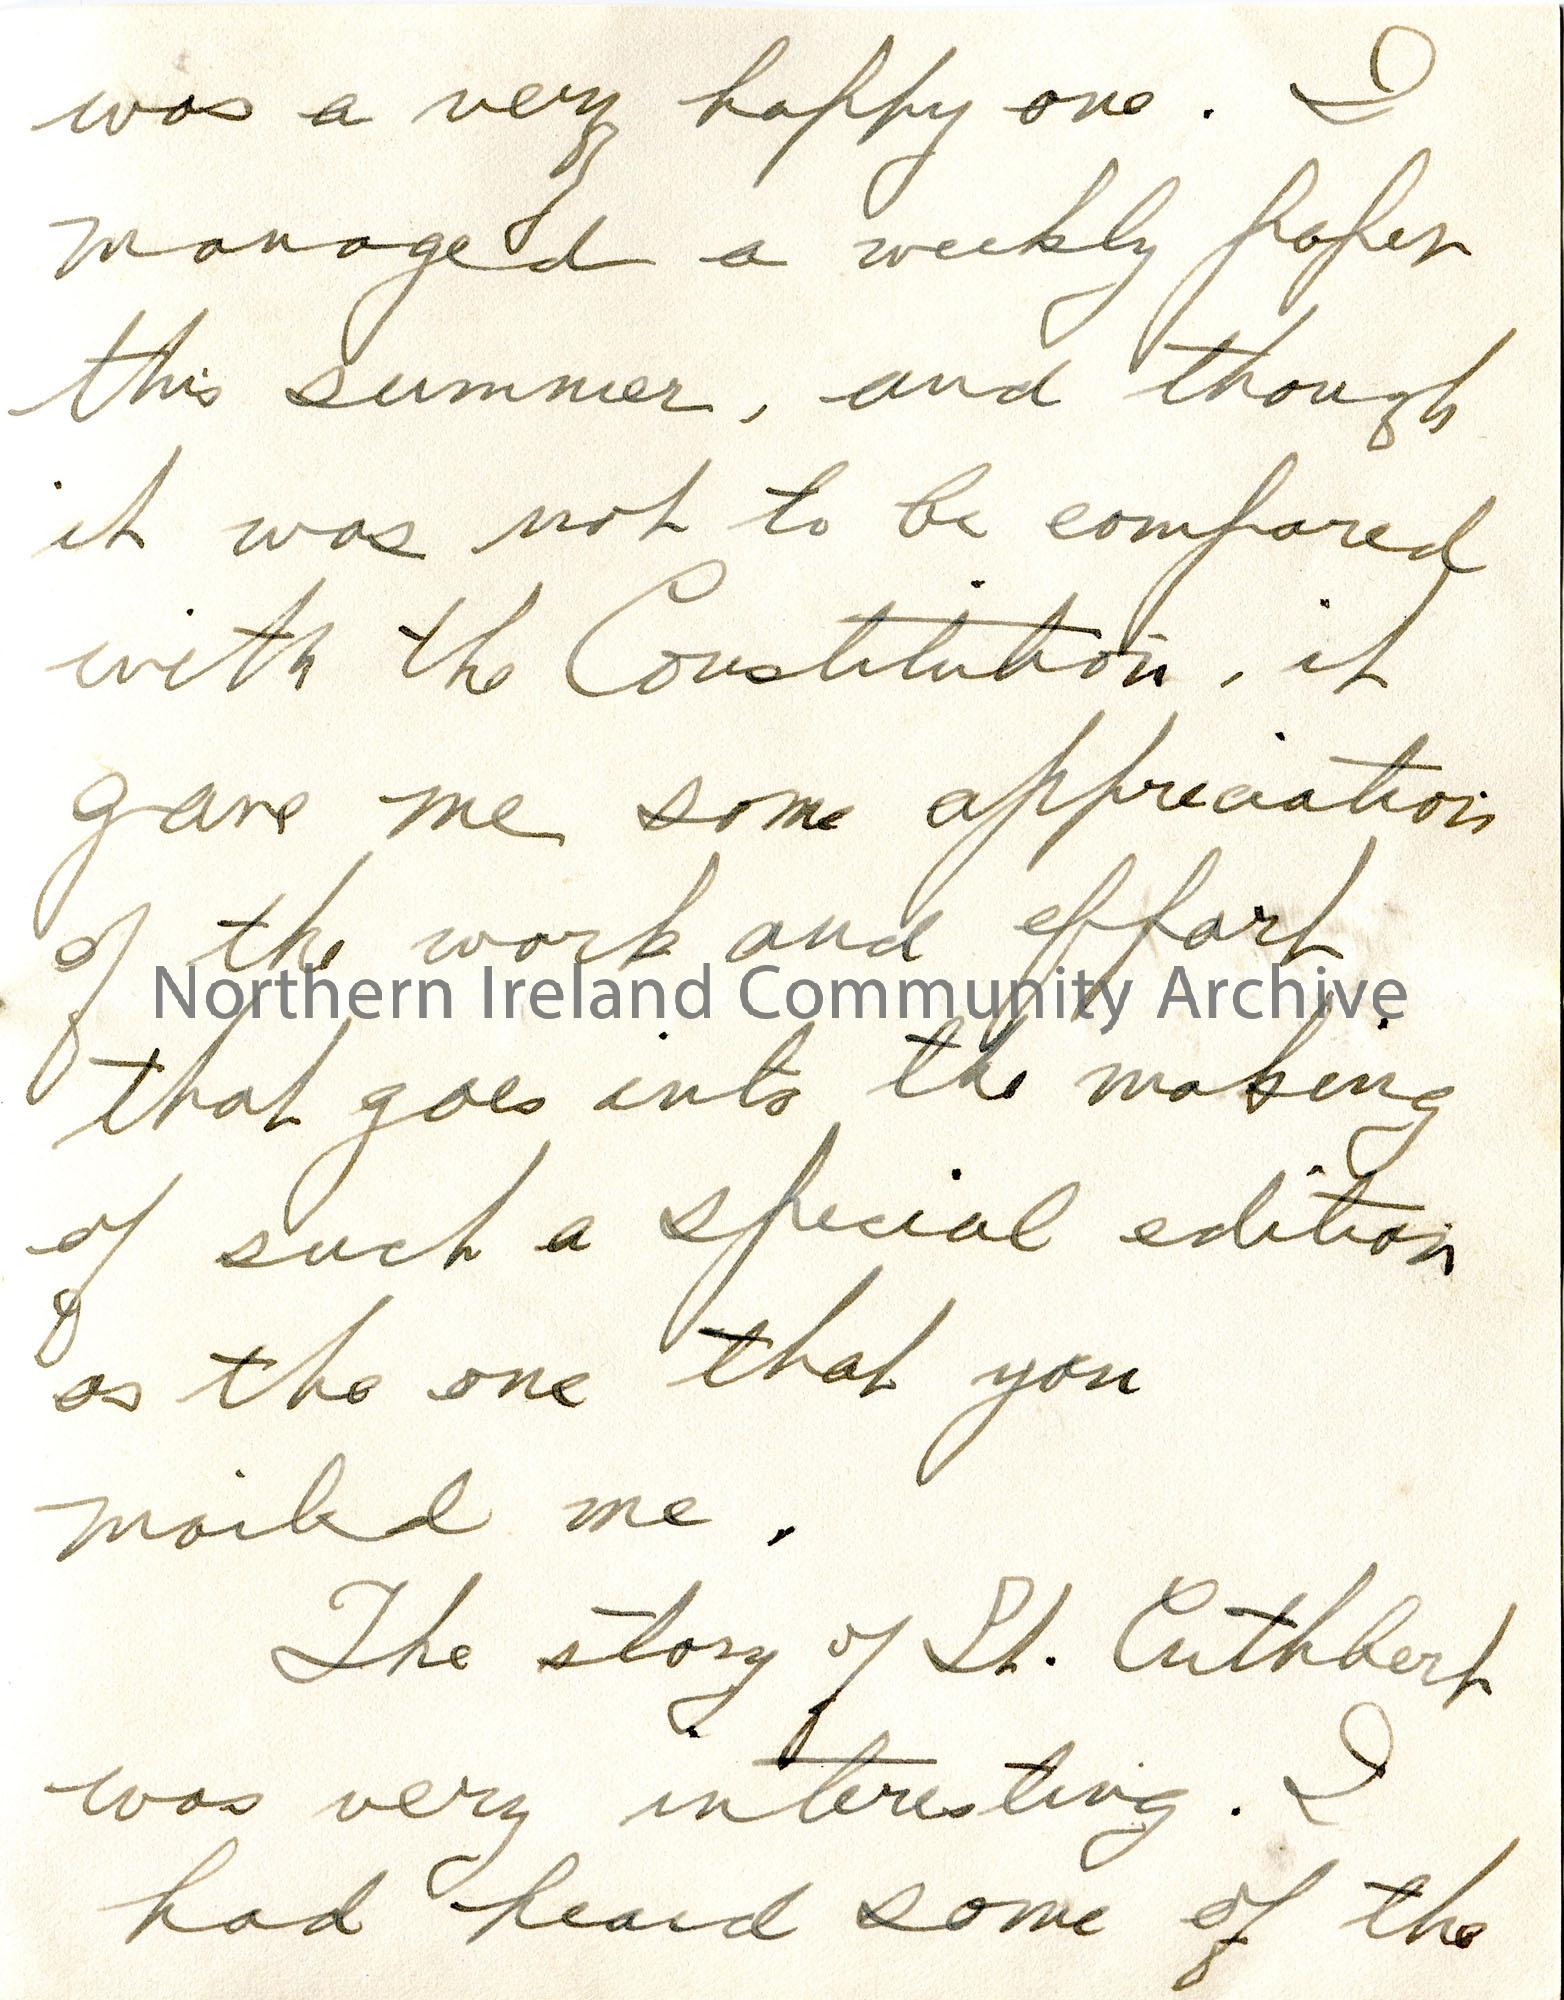 was a very happy one. I
managed a weekly paper
this summer, and though
it was not to be compared
with the Constitution, it
gave me some appreciation
of the work and effort
Northern Ireland Community Archive
that goes into the making
of such a special edition
as the one that you
mailed me.
The story of St. Cuthbert
was very interesting. I
had heard some of the